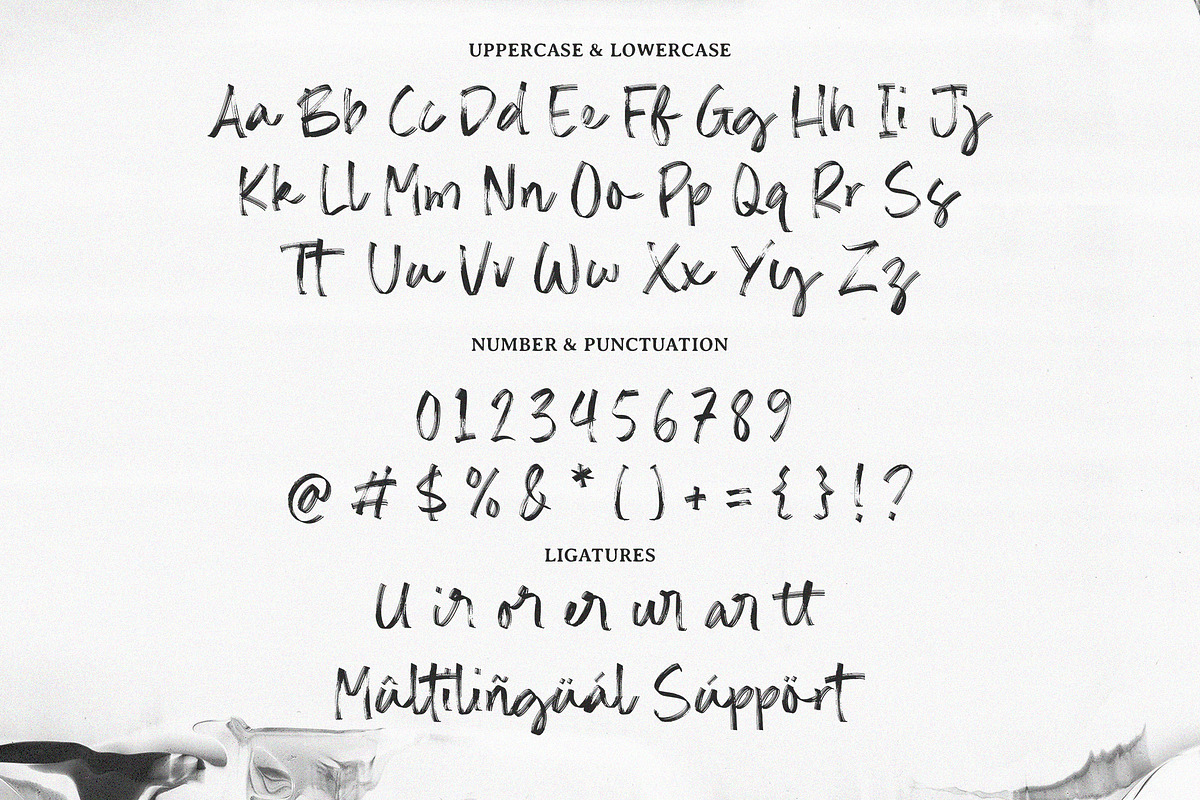 UPPERCASE & LOWERCASE
Aa Bb Cc Dd Ee Ff Gg Hh Ii Jj
Kk Ll Mm Nn Oo Pp Qq Rr Ss
Tt Uu Vv Ww Xx Yy Zz
NUMBER & PUNCTUATION
0 1 2 3 4 5 6 7 8 9
@ # $ % & * ( ) + = { } ! ?
LIGATURES
ll ir or er ur ar tt
Mûltiliñgüál Súppört